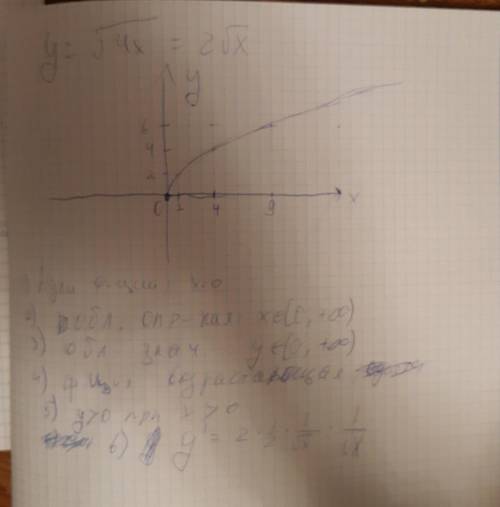 y = √4x = 2√x
y
6
4
2
0 1 4 9 x
x=0
2) обл. опр-ния: x∈[0, +∞)
3) обл знач y∈[0, +∞)
4) ф-ция возрастающая
5) y>0 при x>0
6) y' = 2 · 1/2 · 1/√x · 1/√x